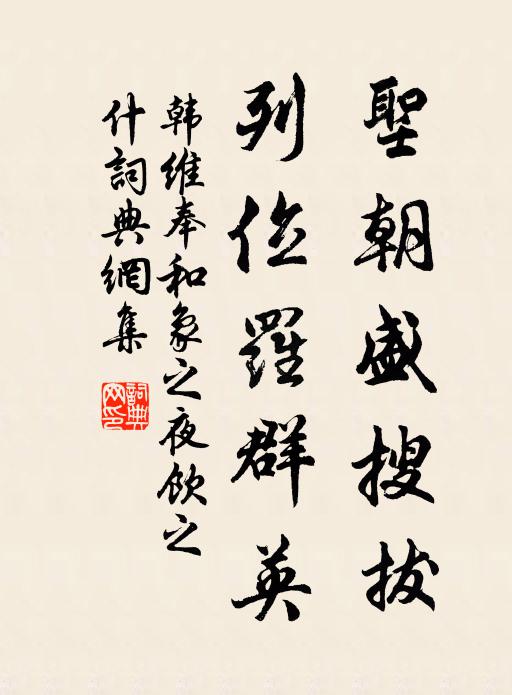 聖朝盛搜拔
列位羅群英
韩维奉和象之夜飲之
什詞典網集
詞典網印